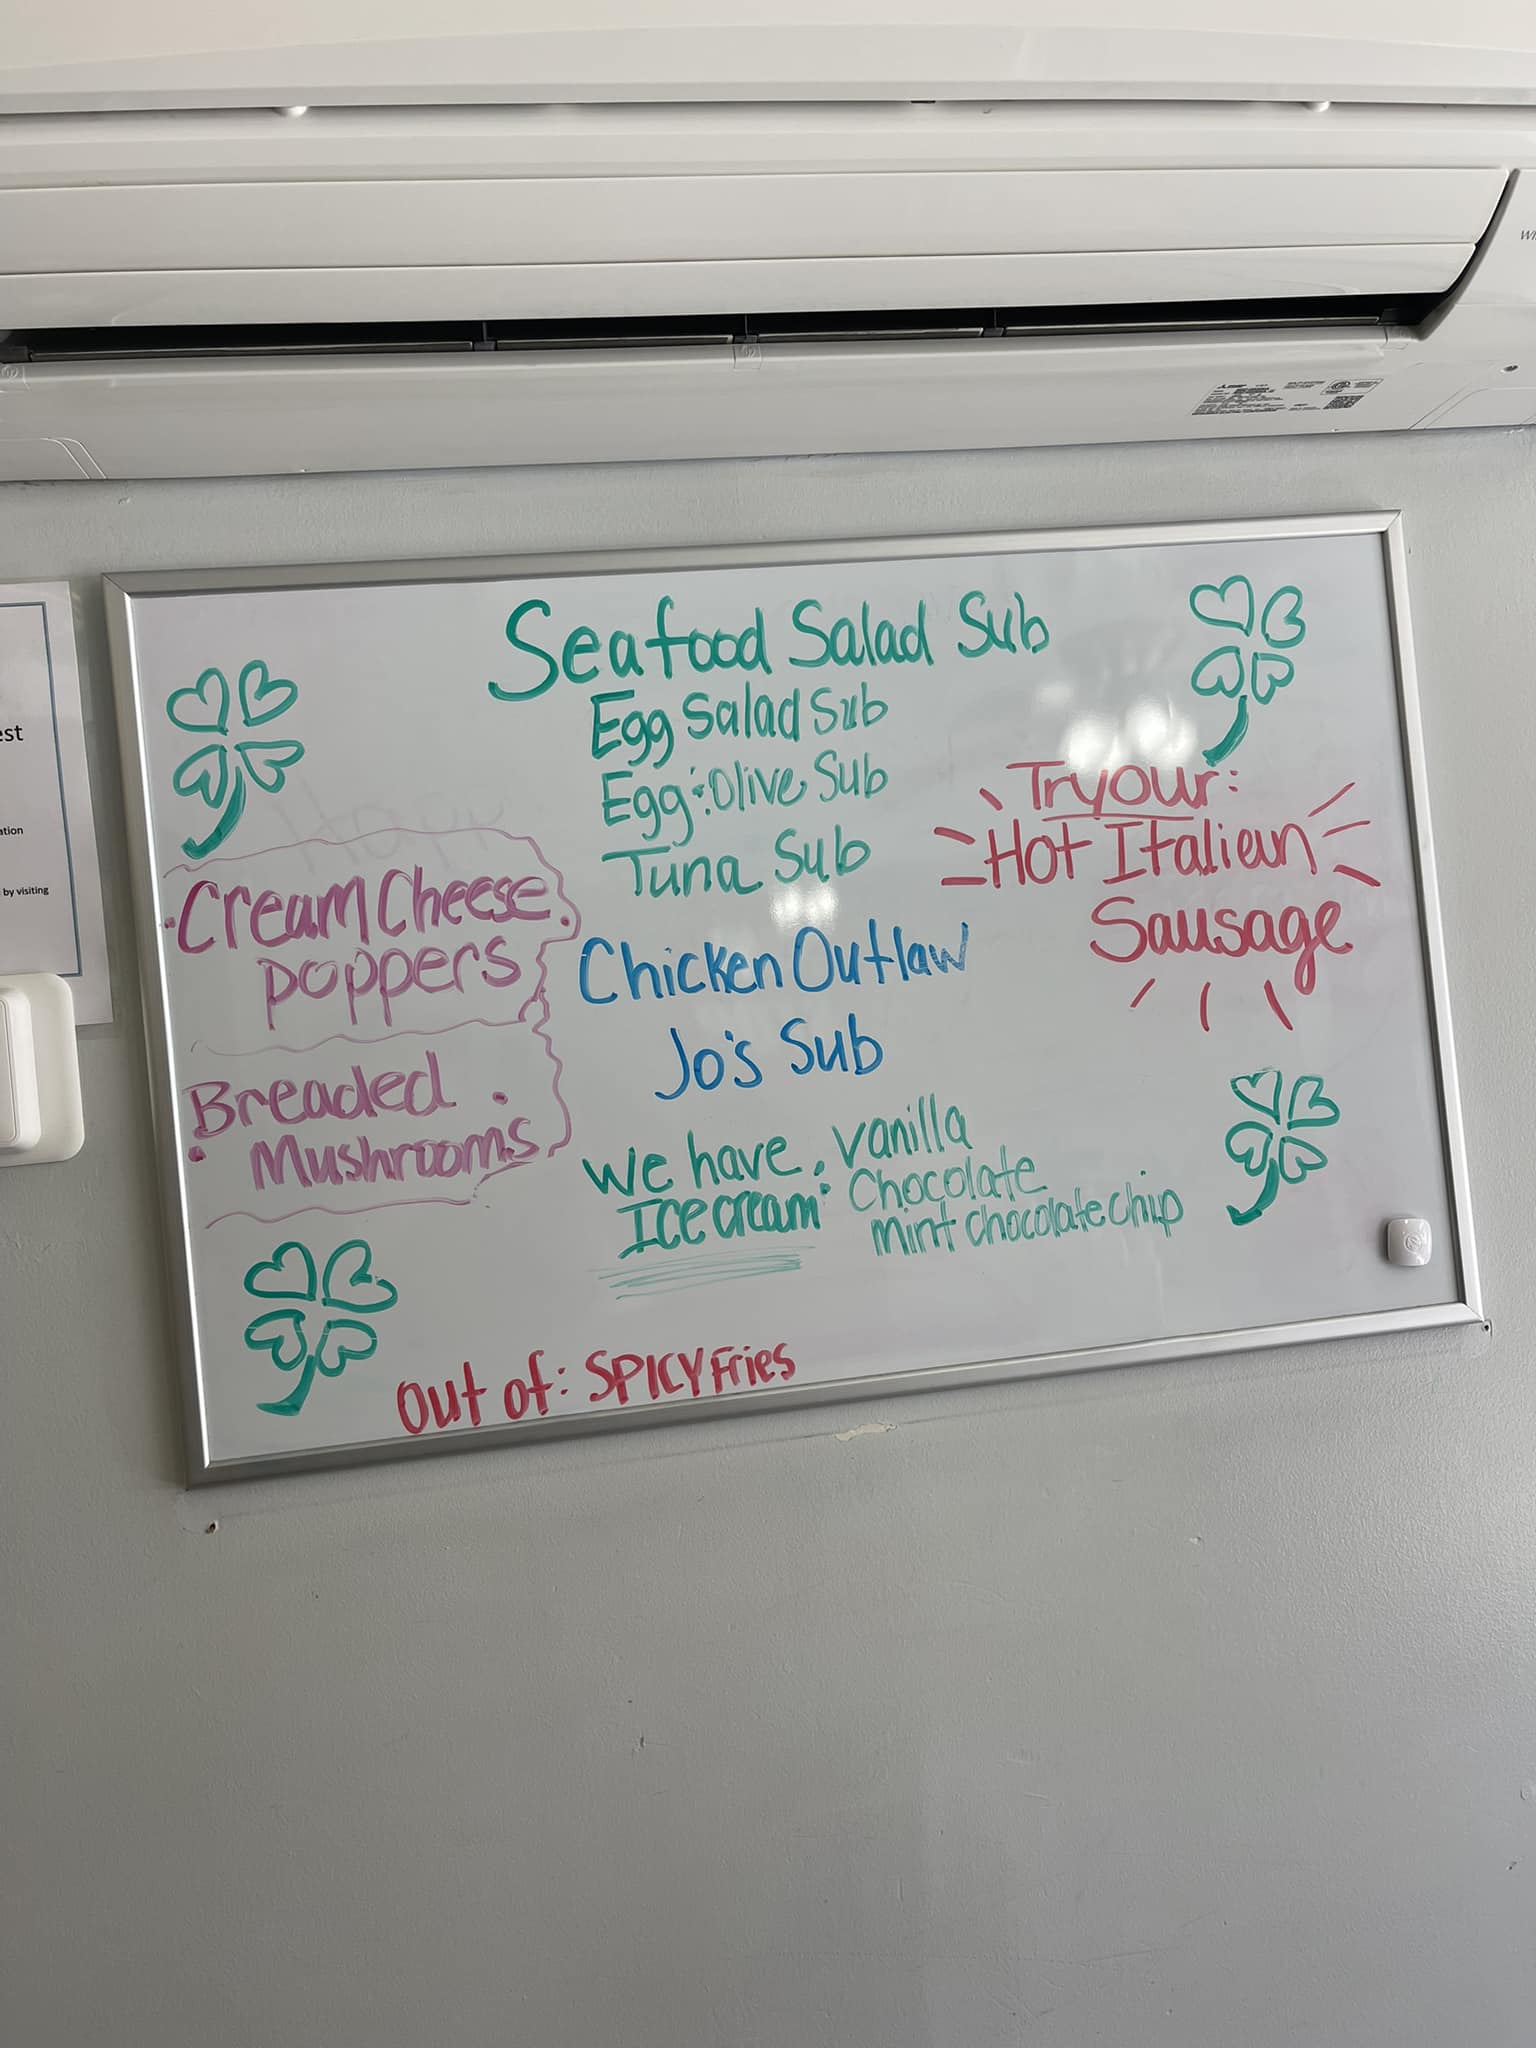 Seafood Salad Sub
Egg Salad Sub
Egg : Olive Sub
Tuna Sub
Cream Cheese
poppers
Breaded
Mushrooms
Chicken Outlaw
Jo's Sub
Try our:
Hot Italian
Sausage
We have
Ice cream:
vanilla
Chocolate
mint chocolate chip
Out of: SPICY Fries
est
ation
by visiting